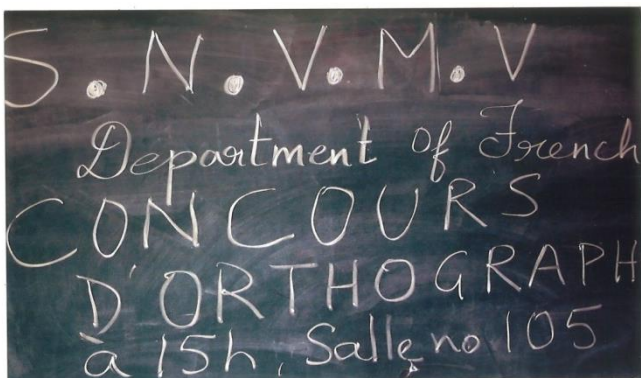 S.N.V.M.V
Department of French
CONCOURS
D'ORTHOGRAPH
à 15h, Salle no 105